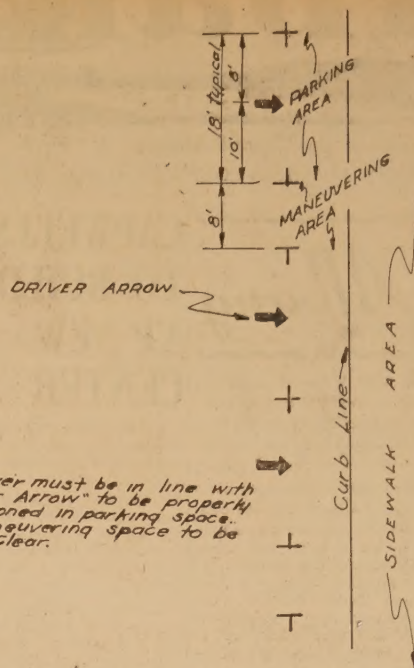 18' typical
8'
10'
8'
PARKING
AREA
MANEUVERING
AREA
DRIVER ARROW
Curb Line
SIDEWALK AREA
must be in line with
Arrow" to be properly
in parking space.
space to be
clear.